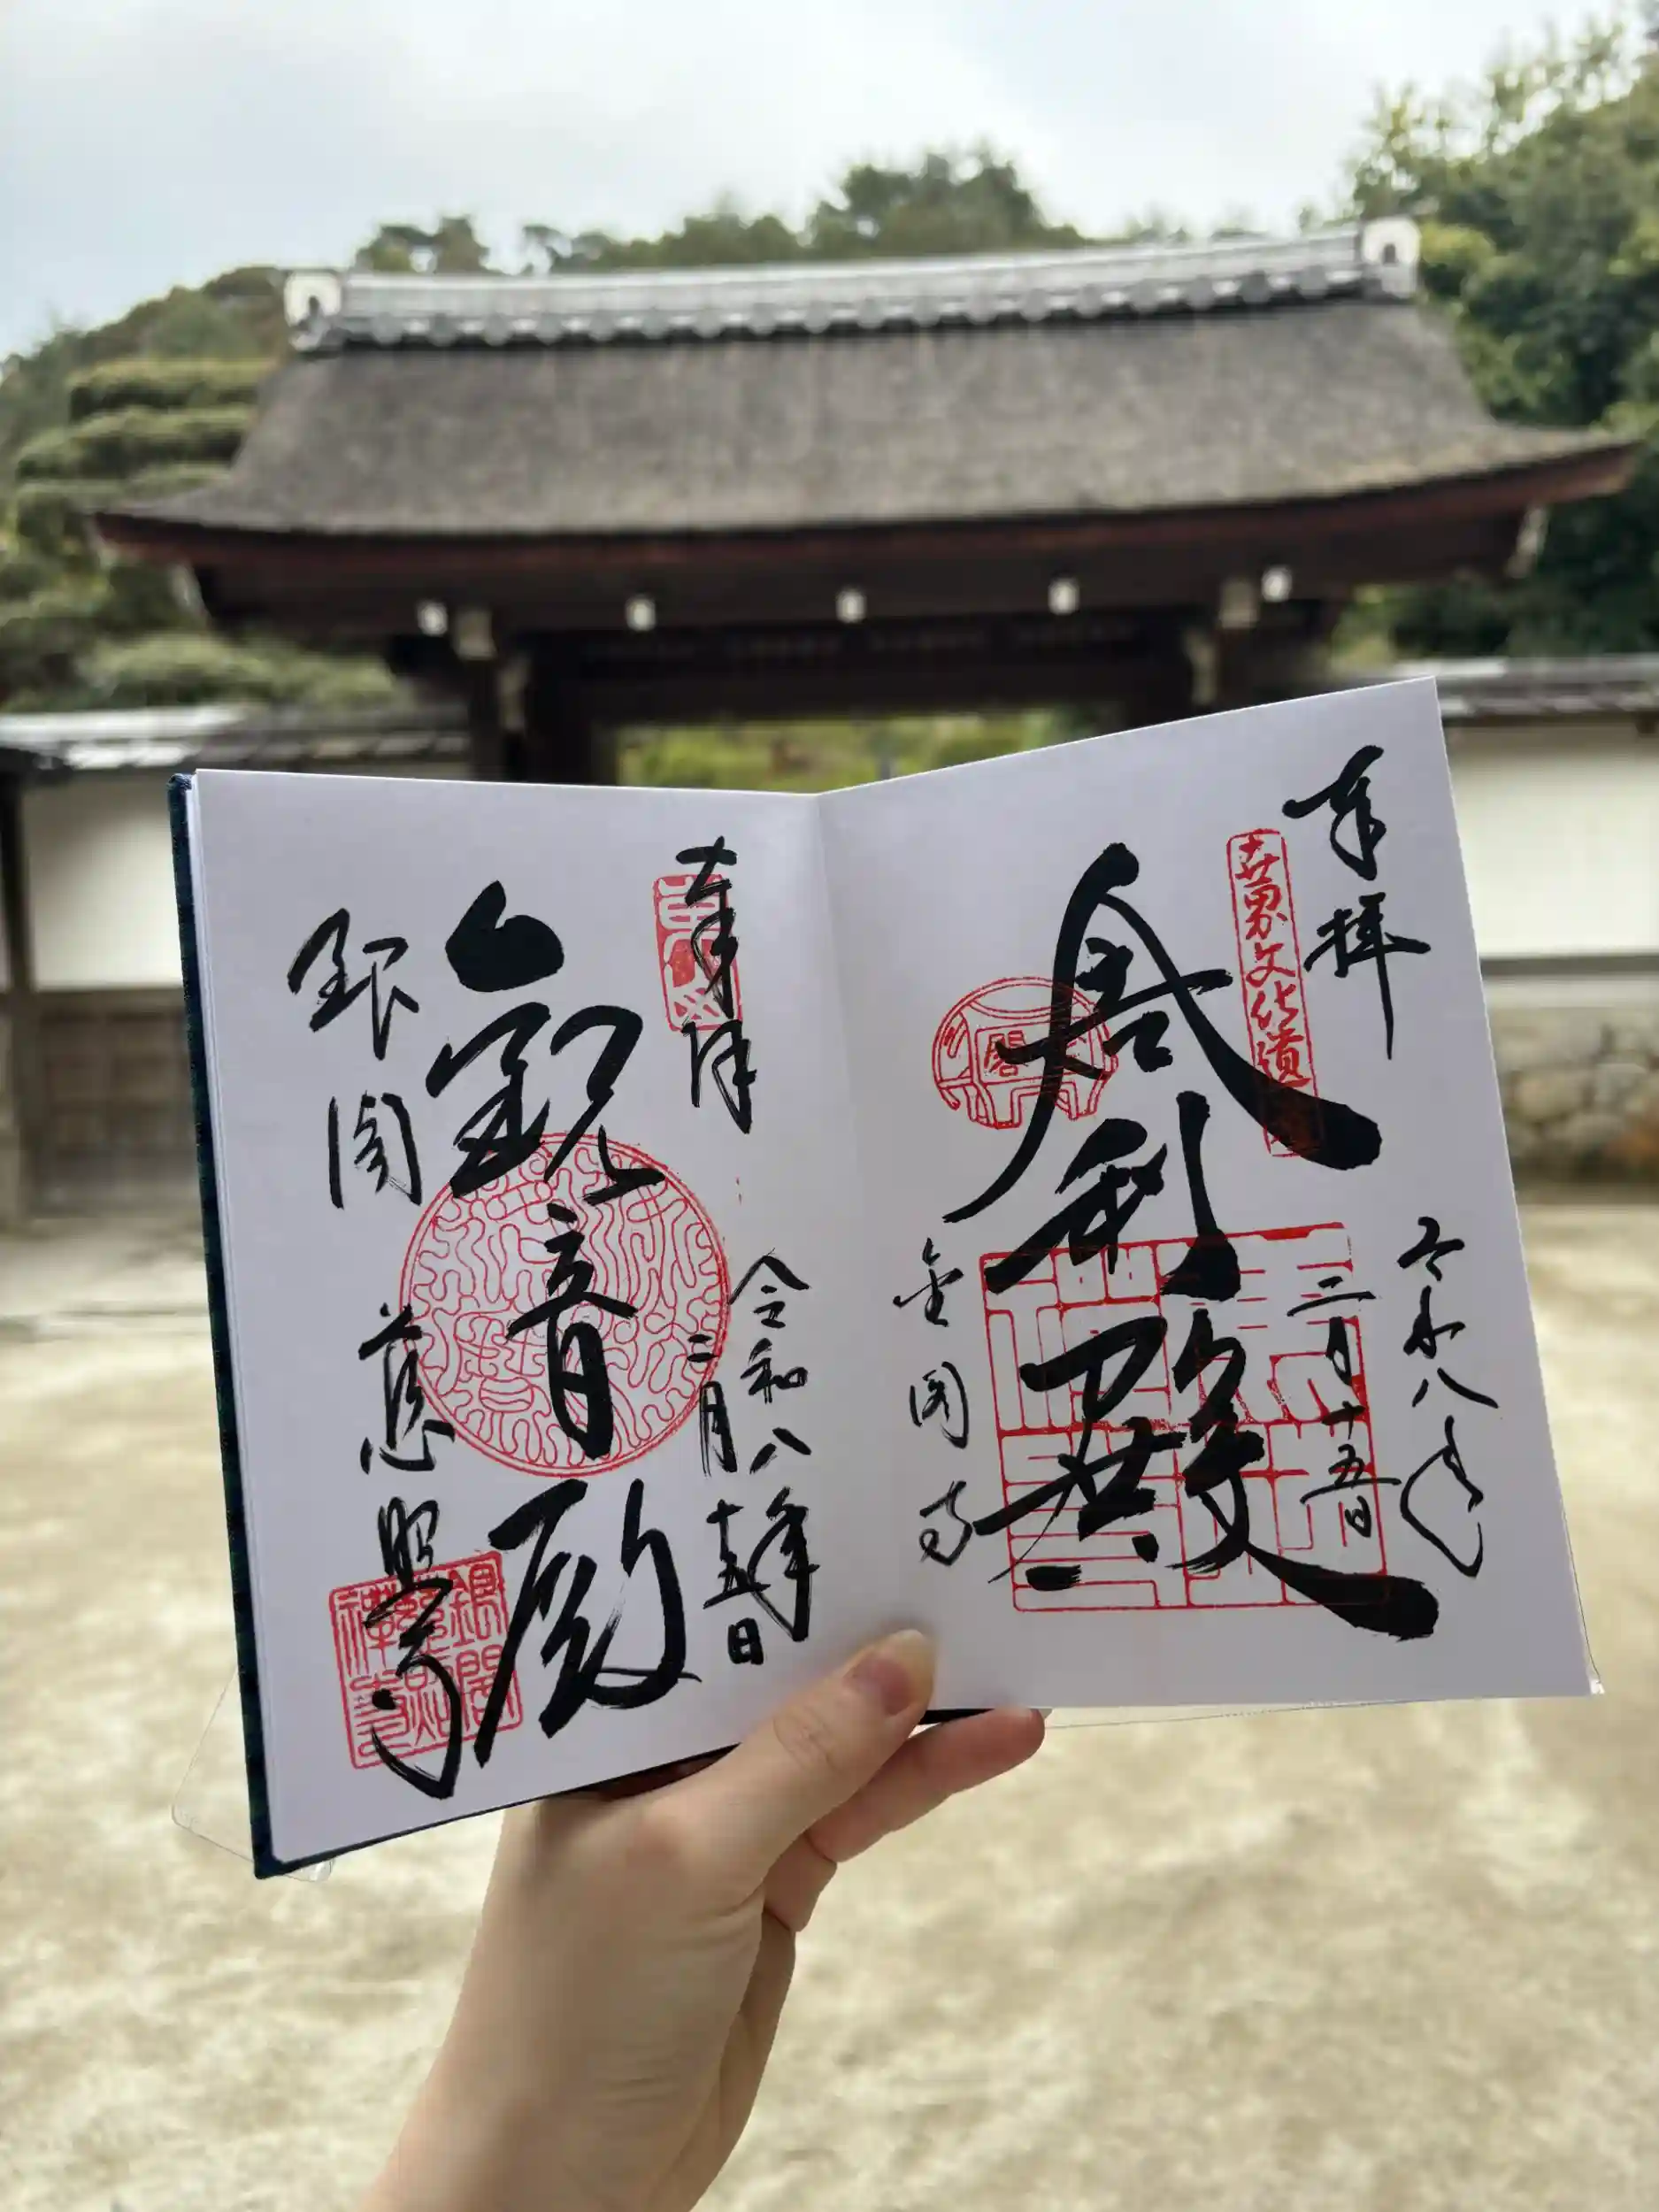 奉拝
世界文化遺産
舎利殿
令和八年
二月十五日
金閣寺
奉拝
令和八年
二月十五日
観音殿
銀閣
慈照寺
銀閣
慈照
禅寺